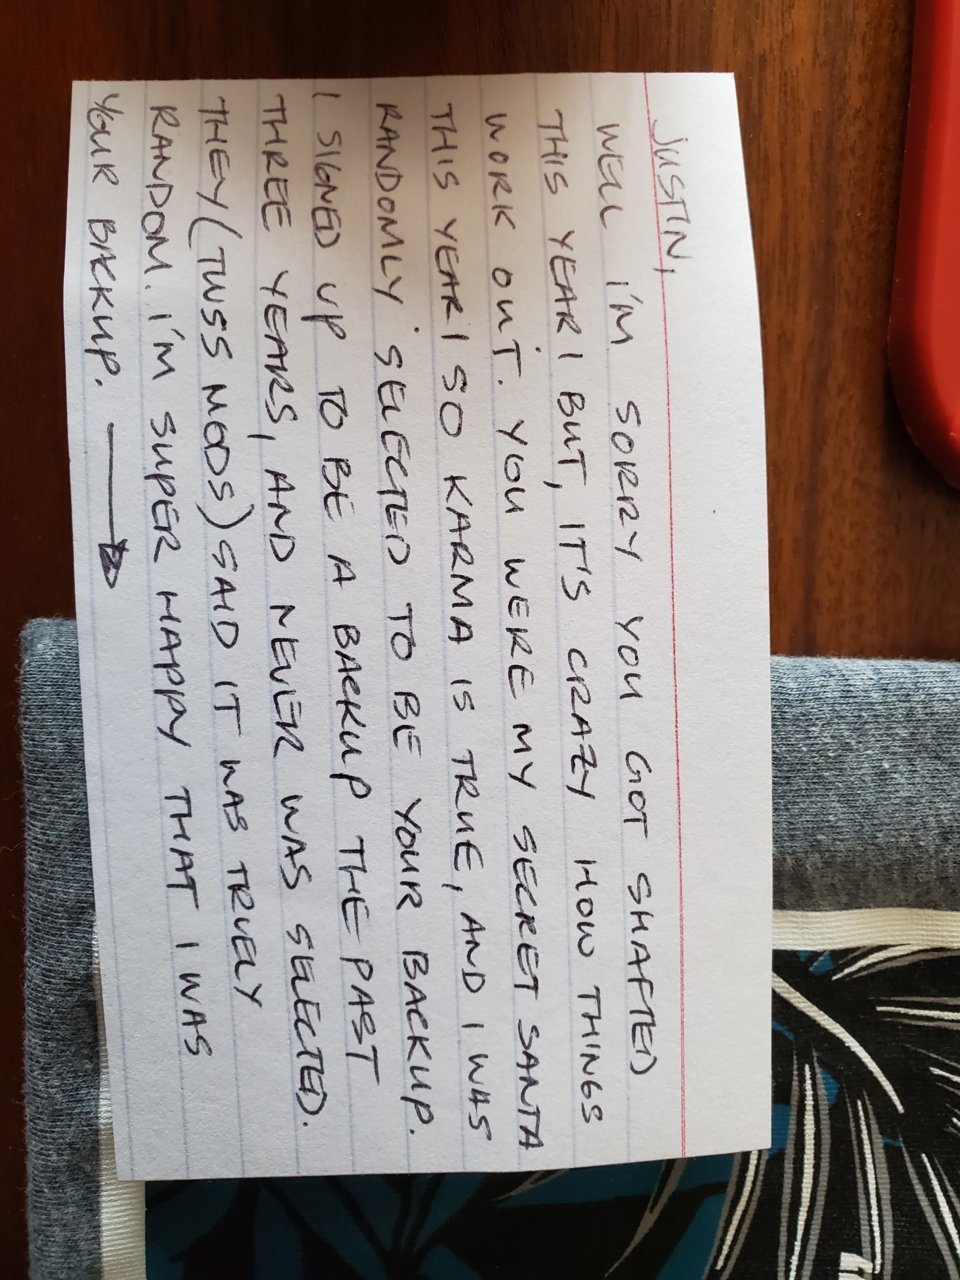 JUSTIN,
WELL I'M SORRY YOU GOT SHAFTED
THIS YEAR! BUT, IT'S CRAZY HOW THINGS
WORK OUT. YOU WERE MY SECRET SANTA
THIS YEAR! SO KARMA IS TRUE, AND I WAS
RANDOMLY SELECTED TO BE YOUR BACKUP.
I SIGNED UP TO BE A BACKUP THE PAST
THREE YEARS, AND NEVER WAS SELECTED.
THEY (TWSS MODS) SAID IT WAS TRUELY
RANDOM. I'M SUPER HAPPY THAT I WAS
YOUR BACKUP. →